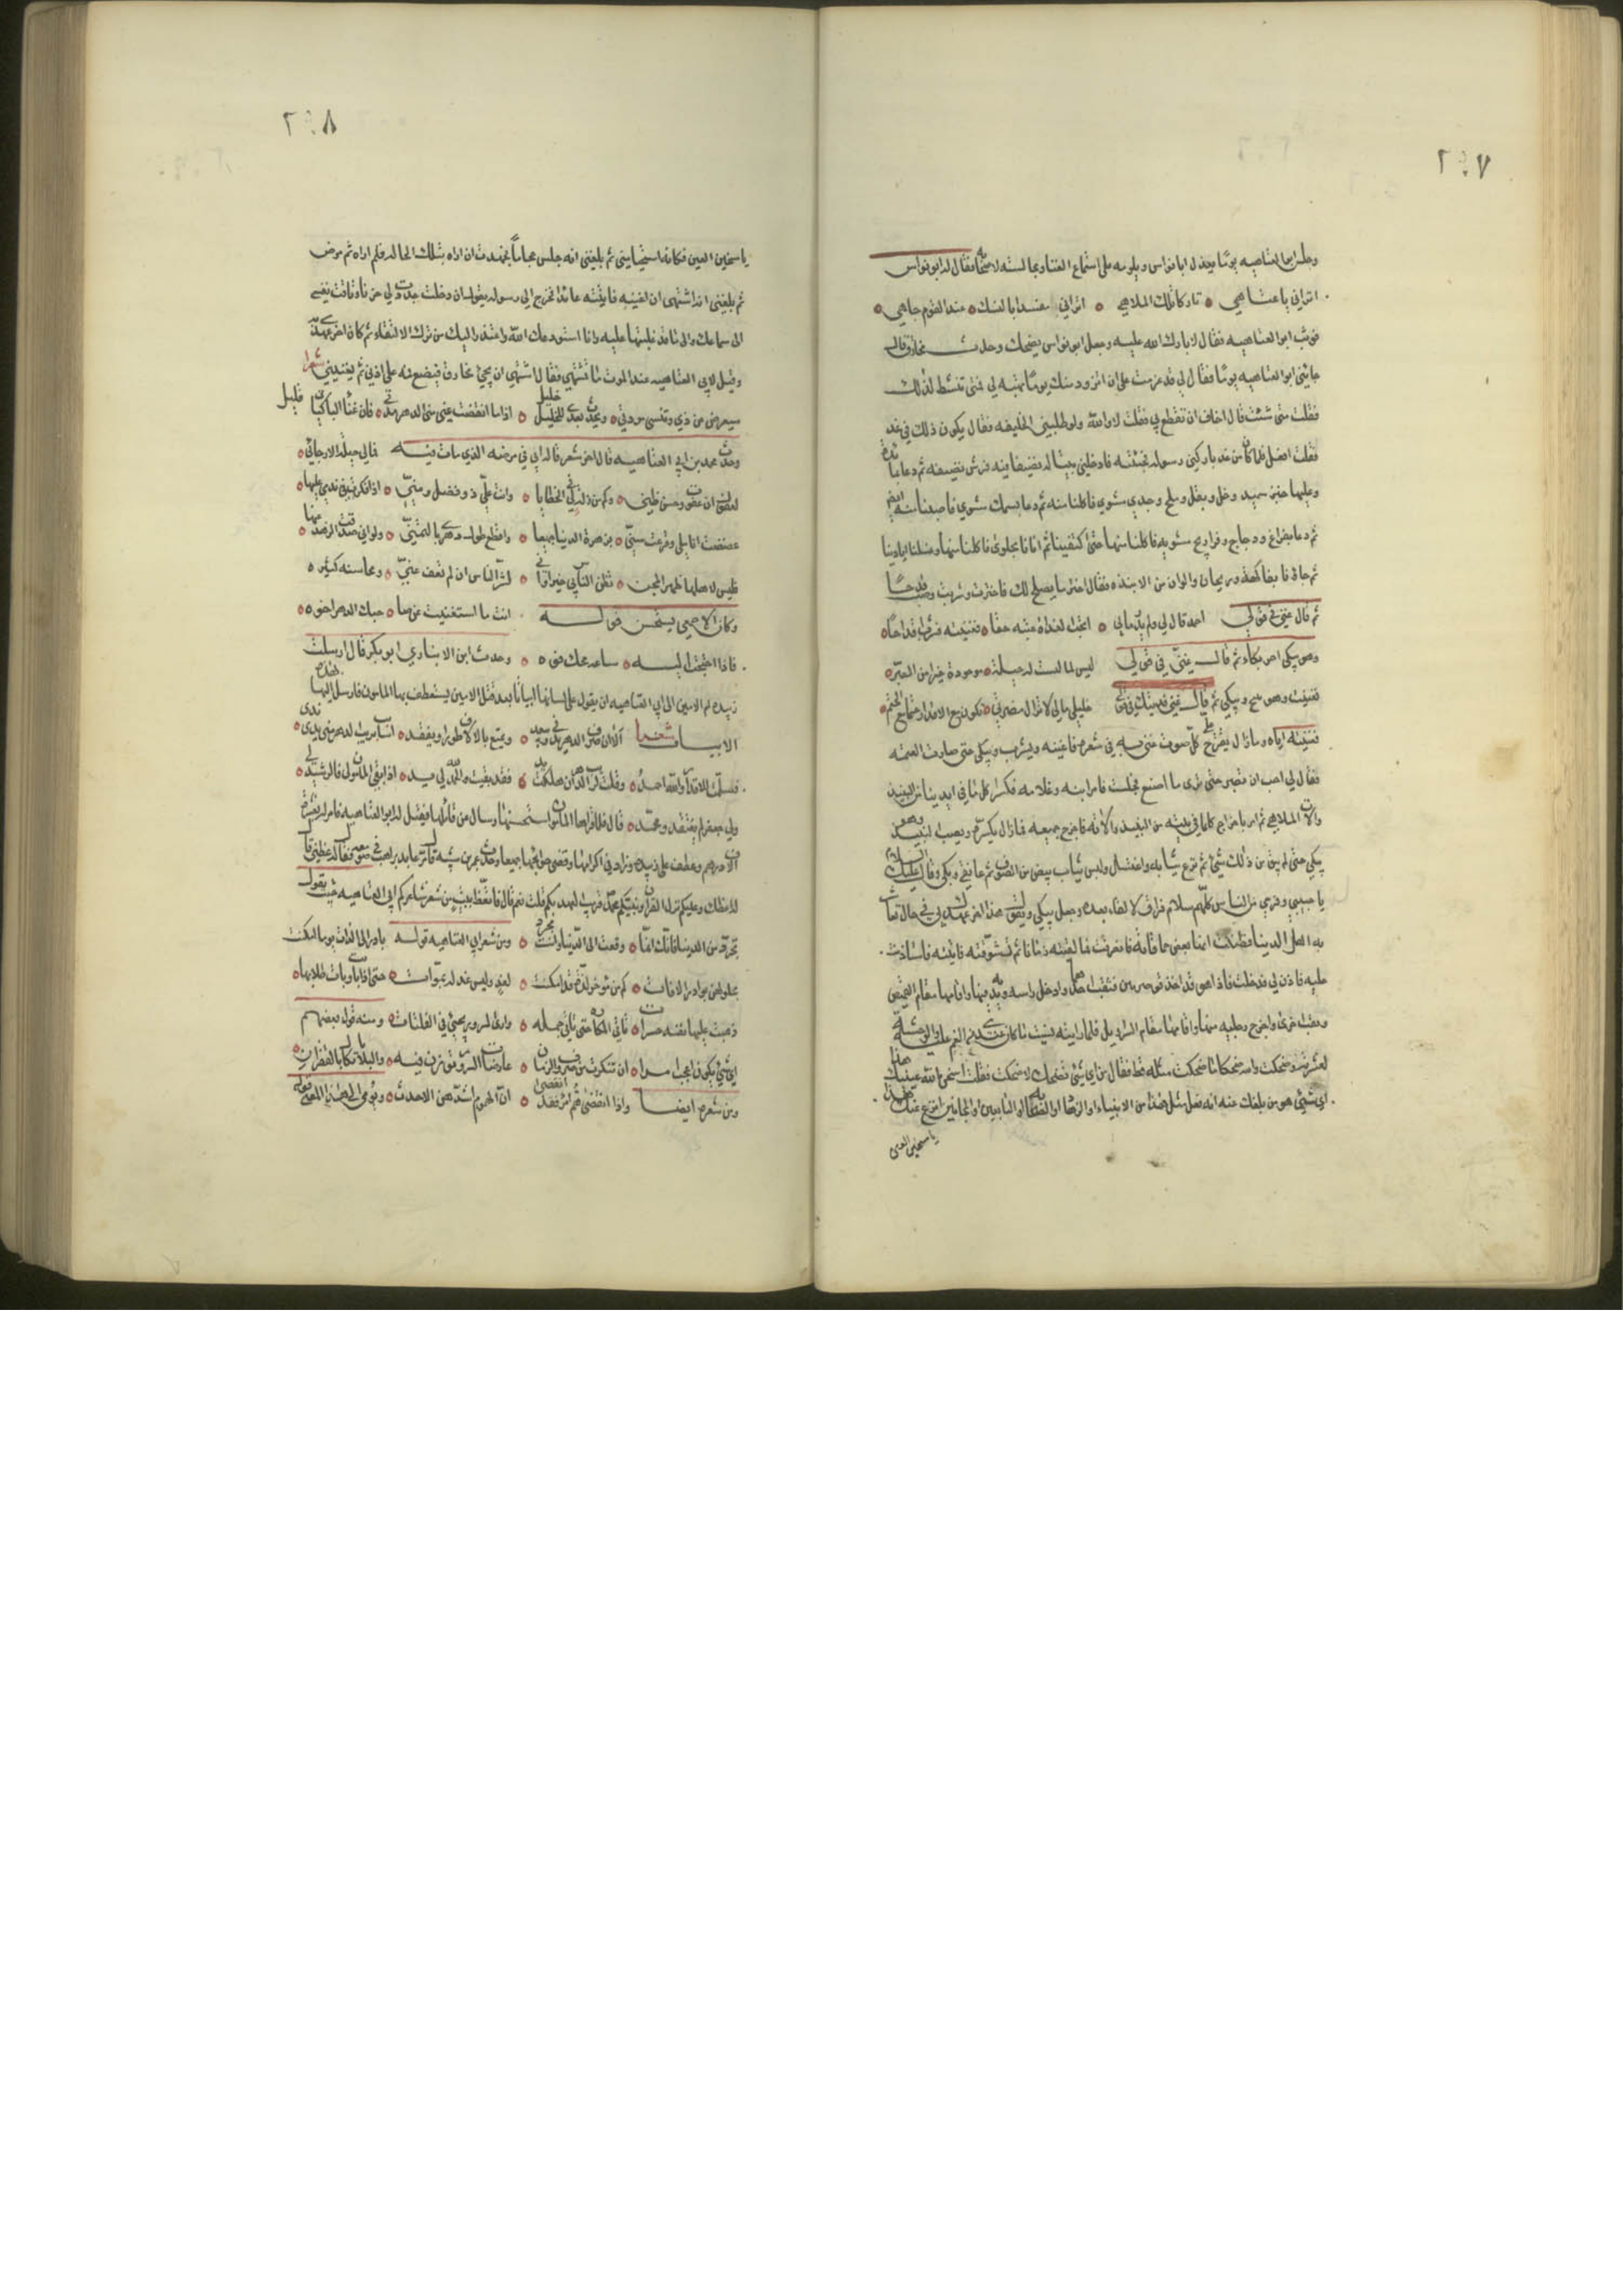 ٢٠٧
وجلس ابو العتاهيه يومًا يعذل ابا نواس ويلومه على استماع الغنا ومجالسته لاصحابه فقال له ابو نواس
اتراني يا عتاهي ٥ تاركا تلك الملاهي ٥ اتراني مفسدا بالنسك ٥ عند القوم جاهي ٥
فوثب ابو العتاهيه فقال لا بارك الله عليه وجعل ابو نواس يضحك وحدث مخارق قال
جاءني ابو العتاهيه يومًا فقال لي قد عزمت على ان اتزود منك يومًا تهبه لي فمتى تنشط لذلك
فقلت متى شئت قال اخاف ان تقطع بي فقلت لا والله ولو طلبني الخليفه فقال يكون ذلك في غد
فقلت افعل فلما كان من غد باركني رسوله فجئته فادخلني بيتا له نضيفا فيه فرش نضيفه ثم دعا بمائدة
وعليها خبز سميد وخل وبقل وملح وجدي مشوي فاكلنا منه ثم دعا بسمك مشوي فاصبنا منه ايضا
ثم دعا بفراخ ودجاج وفراريج مشويه فاكلنا منها حتى اكتفينا ثم اتانا بحلوى فاكلنا منها وغسلنا ايدينا
ثم جاؤنا بفاكهة وريحان والوان من الانبذه فقال اختر ما يصلح لك فاخترت وشربت وصب قدحًا
ثم قال غنني في قولي احمد قال لي ولم يدر ما بي ٥ اتحب الغداة عتبه حقا ٥ فغنيته فشرب قدحًا
وهو يبكي احر بكاء ثم قال غنني في قولي ليس لما ليست له حيلة ٥ موجودة خير من الصبر ٥
فغنيت وهو يبكي ثم قال غنني فديتك في قولي خليلي مالي لا تزال مضرتي ٥ تكون مع الاقدار حتما من الحتم ٥
فغنيته اياه وما زال يقترح على كل صوت غني به في شعره فاغنيه ويشرب ويبكي حتى صارت العتمه
فقال لي احب ان تصبر حتى ترى ما اصنع فجلست فامر ابنه وغلامه فكسرا كل ما في ايدينا من النبيذ
والات الملاهي ثم امر باخراج كلما في بيته من النبيذ والاته فاخرج جميعه فما زال يكسره ويصب النبيذ وهو
يبكي حتى لم يبق من ذلك شيئ ثم نزع ثيابه واغتسل ولبس ثياب بيض من الصوف ثم عانقني وبكى وقال السلام عليك
يا حبيبي وفرحي من الناس كلهم سلام فراق لا لقاء بعده وجعل يبكي ويقول هذا اخر عهدك بي في حال تعاشر
به اهل الدنيا فظننت انها بعض حماقاته فانصرفت فما لقيته زمانا ثم تشوقته فاتيته فاستاذنت
عليه فاذن لي فدخلت فاذا هو قد اخذ قوصرتين فثقب احداهما وادخل راسه ويديه فيها واقامها مقام القميص
وثقب اخرى واخرج رجليه منها واقامها مقام السراويل فلما رايته نسيت ما كان عندي من الغم عليه والوحشه
لعشرته وضحكت والله ضحكا ما ضحكت مثله قط فقال من اي شيئ تضحك لا ضحكت فقلت اسخن الله عينيك هذا
اي شيئ هو من بلغك عنه انه فعل مثل هذا من الانبياء والزهاد او الصحابه او التابعين او المجانين انزع عنك هذا
يا سخين العين
٢٠٨
يا سخين العين فكانه استحيا مني ثم بلغني انه جلس حجاماً فجهدت ان اراه بتلك الحاله فلم اراه ثم مرض
ثم بلغني انه اشتهى ان اغنيه فاتيته عائدا فخرج الي رسوله يقول ان دخلت جددت لي حزنا وتاقت نفسي
الى سماعك والى ما قد غلبتها عليه وانا استودعك الله واعتذر اليك من ترك الالتقاء ثم كان اخر عهدي به
وقيل لابي العتاهيه عند الموت ما تشتهي فقال اشتهي ان يجئ مخارق فيضع فمه على اذني ثم يغنيني شعرا
سيعرض عن ذكري وتنسى مودتي ٥ ويحدث بعدي للخليل خليل ٥ اذا ما انقضت عني من الدهر مدتي ٥ فان غنا الباكيات قليل
وحدث محمد بن ابي العتاهيه قال اخر شعر قاله ابي في مرضه الذي مات فيه فمالي حيلة الا رجائي ٥
لعفوك ان عفوت وحسن ظني ٥ وكم من زلة لي في الخطايا ٥ وانت علي ذو فضل ومن ٥ اذا فكرت في ندمي عليها ٥
عضضت اناملي وقرعت سني ٥ بزهرة الدنيا جميعا ٥ واقطع طول دهري بالتمني ٥ ولو اني صدقت الزهد منها ٥
قلبت لاهلها ظهر المجن ٥ يظن الناس بي خيرا واني ٥ لشر الناس ان لم تعف عني ٥ ومحاسنه كثيره ٥
وكان الاصمعي يستحسن قوله انت ما استغنيت عن صاحبك الدهر اخوه ٥
فاذا احتجت اليه ٥ ساعة مجك فوه ٥ وحدث ابن الانباري ابو بكر قال ارسلت
زبيده ام الامين الى ابي العتاهيه ان يقول على لسانها ابياتا بعد قتل الامين يستعطف بها المامون فارسل اليها هذه
الابيات شعرا الا ان صرف الدهر يدني ويبعد ٥ ويمتع بالالاف طورا ويفقد ٥ اصابت لريب الدهر مني يدي يدى ٥
فسلمت للاقدار والله احمد ٥ وقلت لريب الدهر ان هلكت يد ٥ فقد بقيت والحمد لله لي يد ٥ اذا بقي المامون لي فالرشيد لي ٥
ولي جعفر لم يفتقد ومحمد ٥ قال فلما قراها المامون استحسنها وسال من قائلها فقيل له ابو العتاهيه فامر له بعشرة
الاف درهم وعطف على زبيده وزاد في اكرامها وقضى حوائجها جميعا وحدث عمر بن شبه قال مر عابد براهب في صومعه فقال له عظني قال
اعظك وعليكم نزل القران ونبيكم محمد قريب العهد بكم قلت نعم قال فاتعظ ببيت من شعر شاعركم ابي العتاهيه حيث يقول
تجرد من الدنيا فانك انما ٥ وقعت الى الدنيا وانت مجرد ٥ ومن شعر ابي العتاهيه قوله بادر الى اللذات يوما امكنت
بحلولهن بوادر الافات ٥ كم من مؤخر لذة قد امكنت ٥ لغد وليس غد له بموات ٥ حتى اذا فات وبات طلابها ٥
ذهبت عليها نفسه حسرات ٥ تاتي المكاره حتى تاتي جمله ٥ وارى السرور يجيئ في الفلتات ٥ ومنه قول بعضهم
اي شيئ يكون اعجب امرا ٥ ان تفكرت من صروف الزمان ٥ عارضات السرور توزن فيه ٥ والبلايا تكال بالقفزان ٥
ومن شعره ايضا واذا انقضى هم امرئ فقد انقضى ٥ ان الهموم اشدهن الاحدث ٥